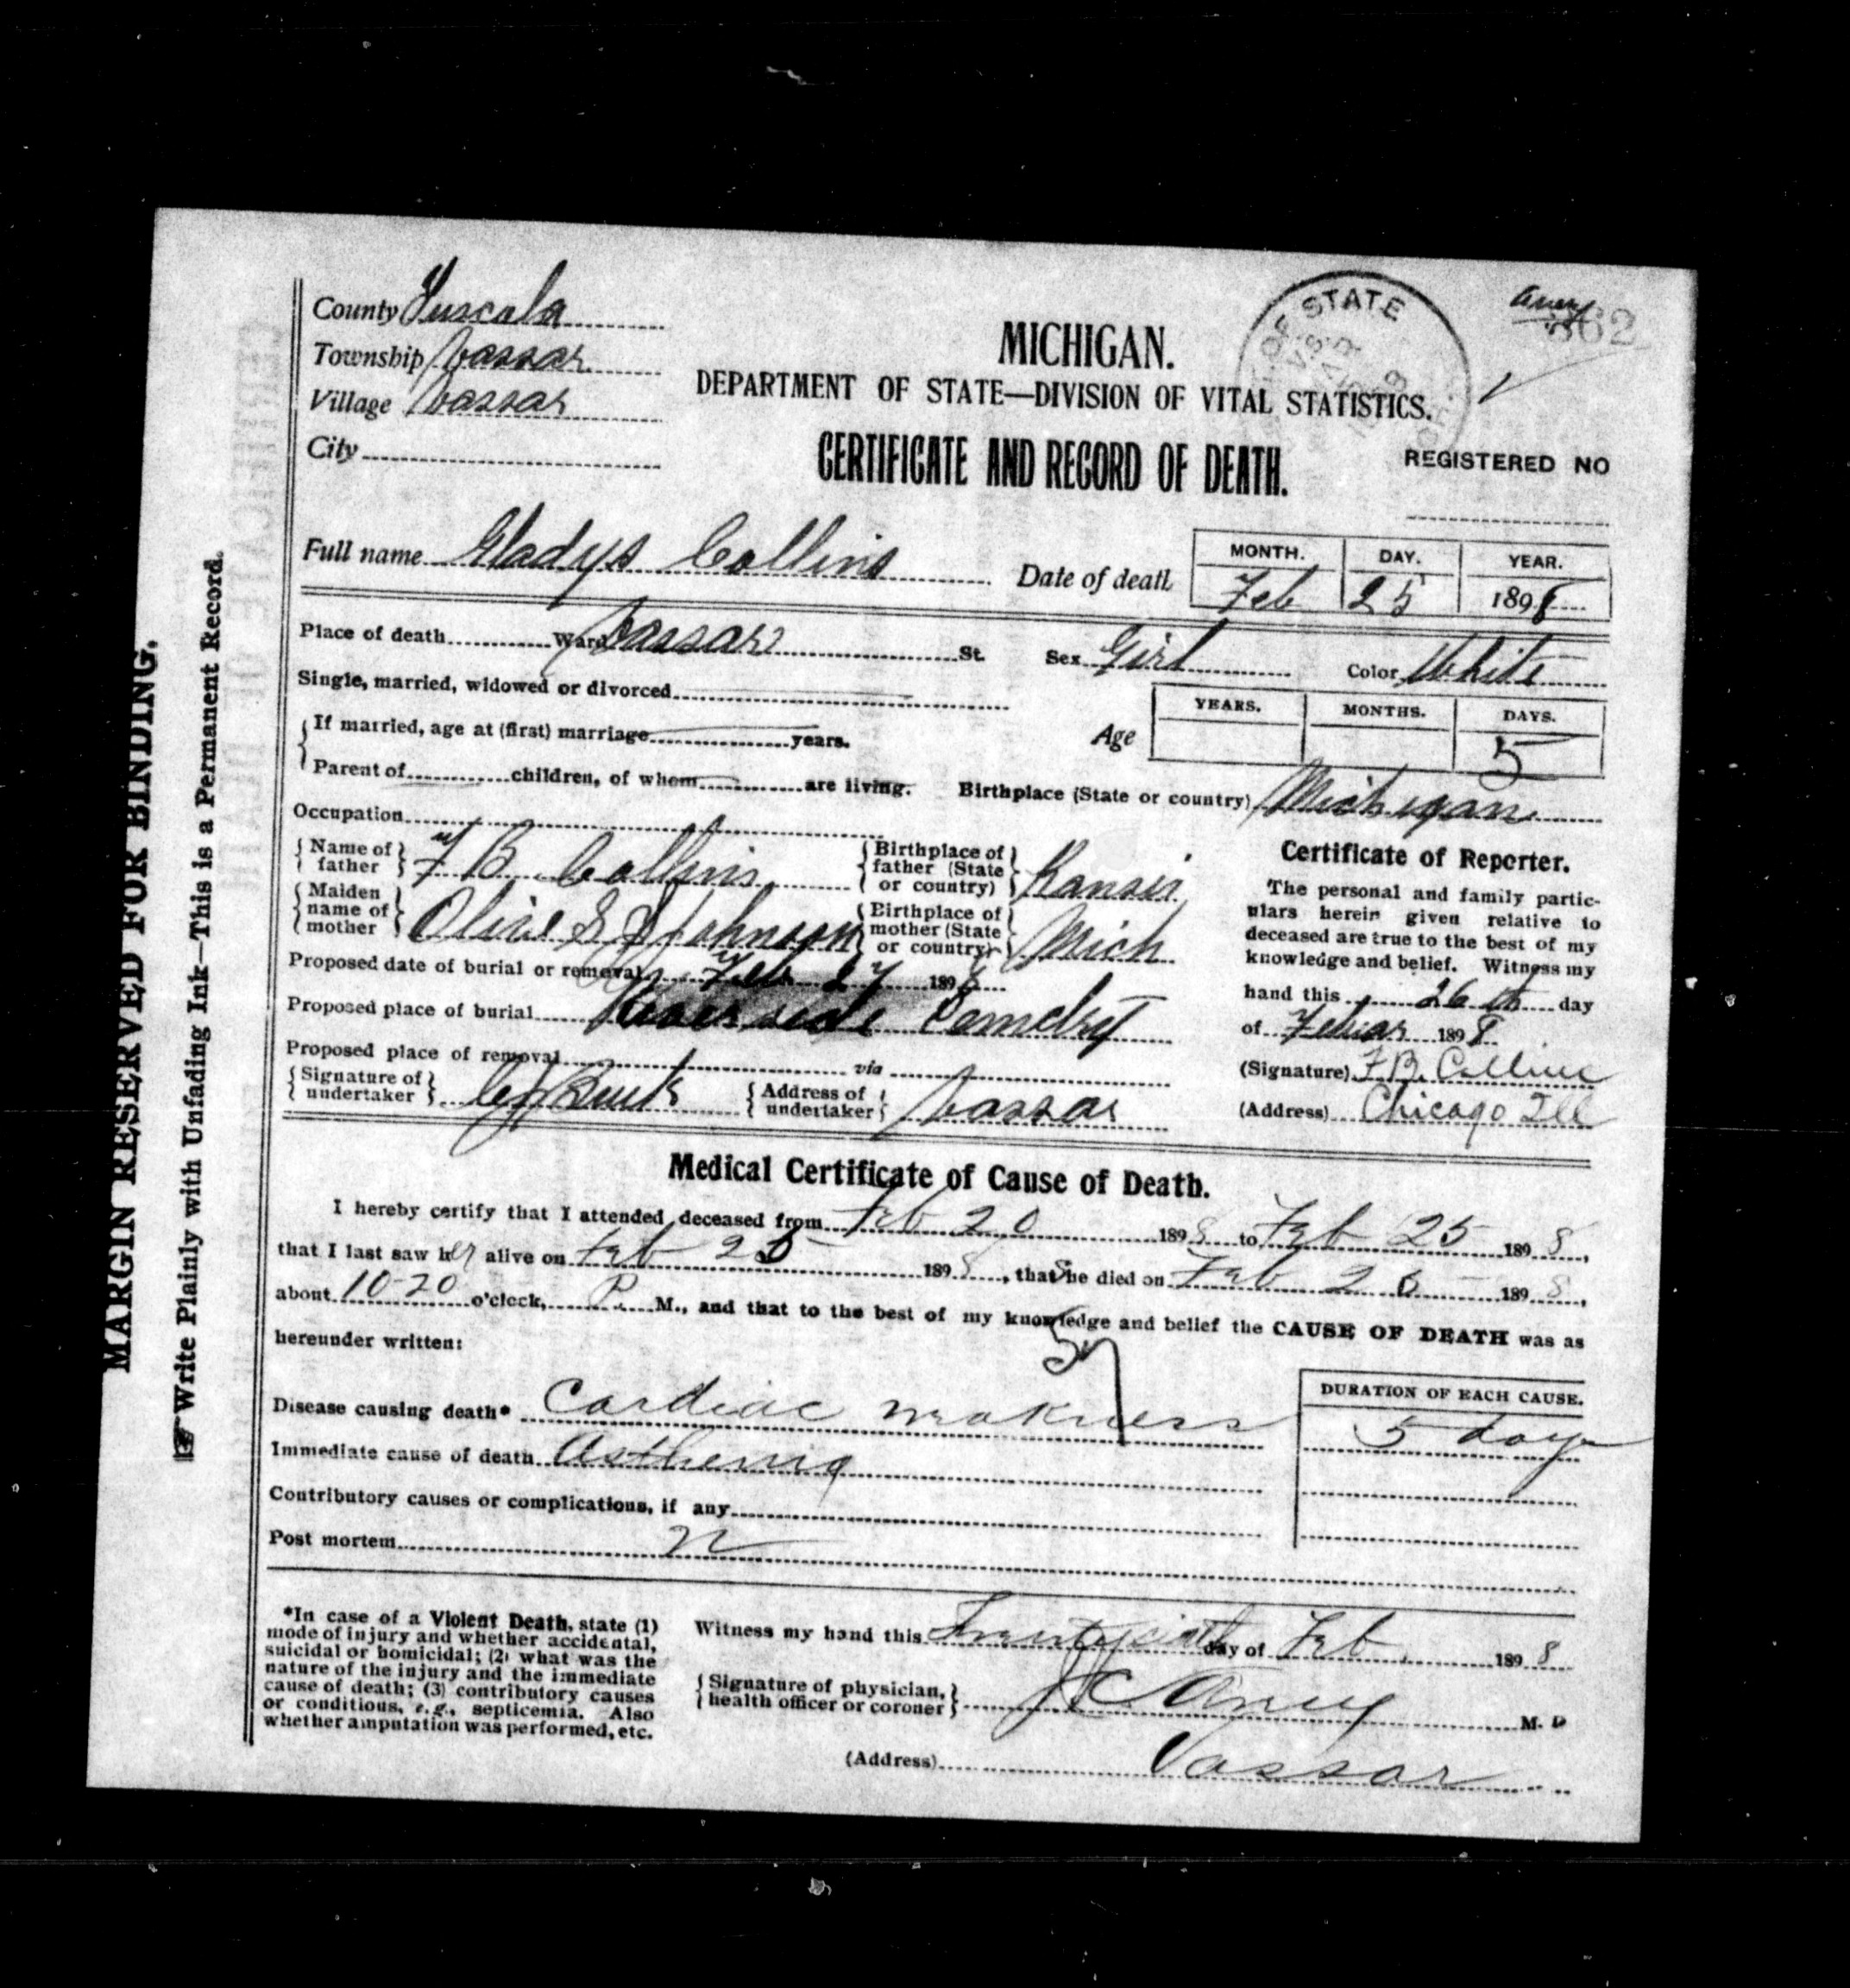 County Tuscola
Township Vassar
Village Vassar
City
MICHIGAN.
DEPARTMENT OF STATE—DIVISION OF VITAL STATISTICS.
CERTIFICATE AND RECORD OF DEATH.
OF STATE
362
REGISTERED NO
Full name Gladys Collins
Date of death
MONTH. DAY. YEAR.
Feb 25 1898
Place of death Ward Vassar St.
Sex Girl Color White
Single, married, widowed or divorced
If married, age at (first) marriage years.
Age
YEARS. MONTHS. DAYS.
5
Parent of children, of whom are living.
Birthplace (State or country) Michigan
Occupation
Name of father F B Collins
Birthplace of father (State or country)
Maiden name of mother Olive S Johnson
Birthplace of mother (State or country) Mich
Proposed date of burial or removal Feb 27 189
Proposed place of burial Riverside Cemetry
Proposed place of removal via
Signature of undertaker
Address of undertaker Vassar
Certificate of Reporter.
The personal and family partic-
ulars herein given relative to
deceased are true to the best of my
knowledge and belief. Witness my
hand this 26th day
of 1898
(Signature) F.B. Collins
(Address) Chicago Ill
Medical Certificate of Cause of Death.
I hereby certify that I attended deceased from Feb 20 1898 to Feb 25 1898,
that I last saw her alive on Feb 25 1898, that She died on Feb 25 1898,
about 10-20 o'clock, P. M., and that to the best of my knowledge and belief the CAUSE OF DEATH was as
hereunder written:
57
DURATION OF EACH CAUSE.
Disease causing death* Cardiac weakness 5 days
Immediate cause of death Asthenia
Contributory causes or complications, if any
Post mortem
*In case of a Violent Death, state (1)
mode of injury and whether accidental,
suicidal or homicidal; (2) what was the
nature of the injury and the immediate
cause of death; (3) contributory causes
or conditions, e.g., septicemia. Also
whether amputation was performed, etc.
Witness my hand this day of Feb 1898
Signature of physician, health officer or coroner M. D
(Address) Vassar
MARGIN RESERVED FOR BINDING.
Write Plainly with Unfading Ink—This is a Permanent Record.